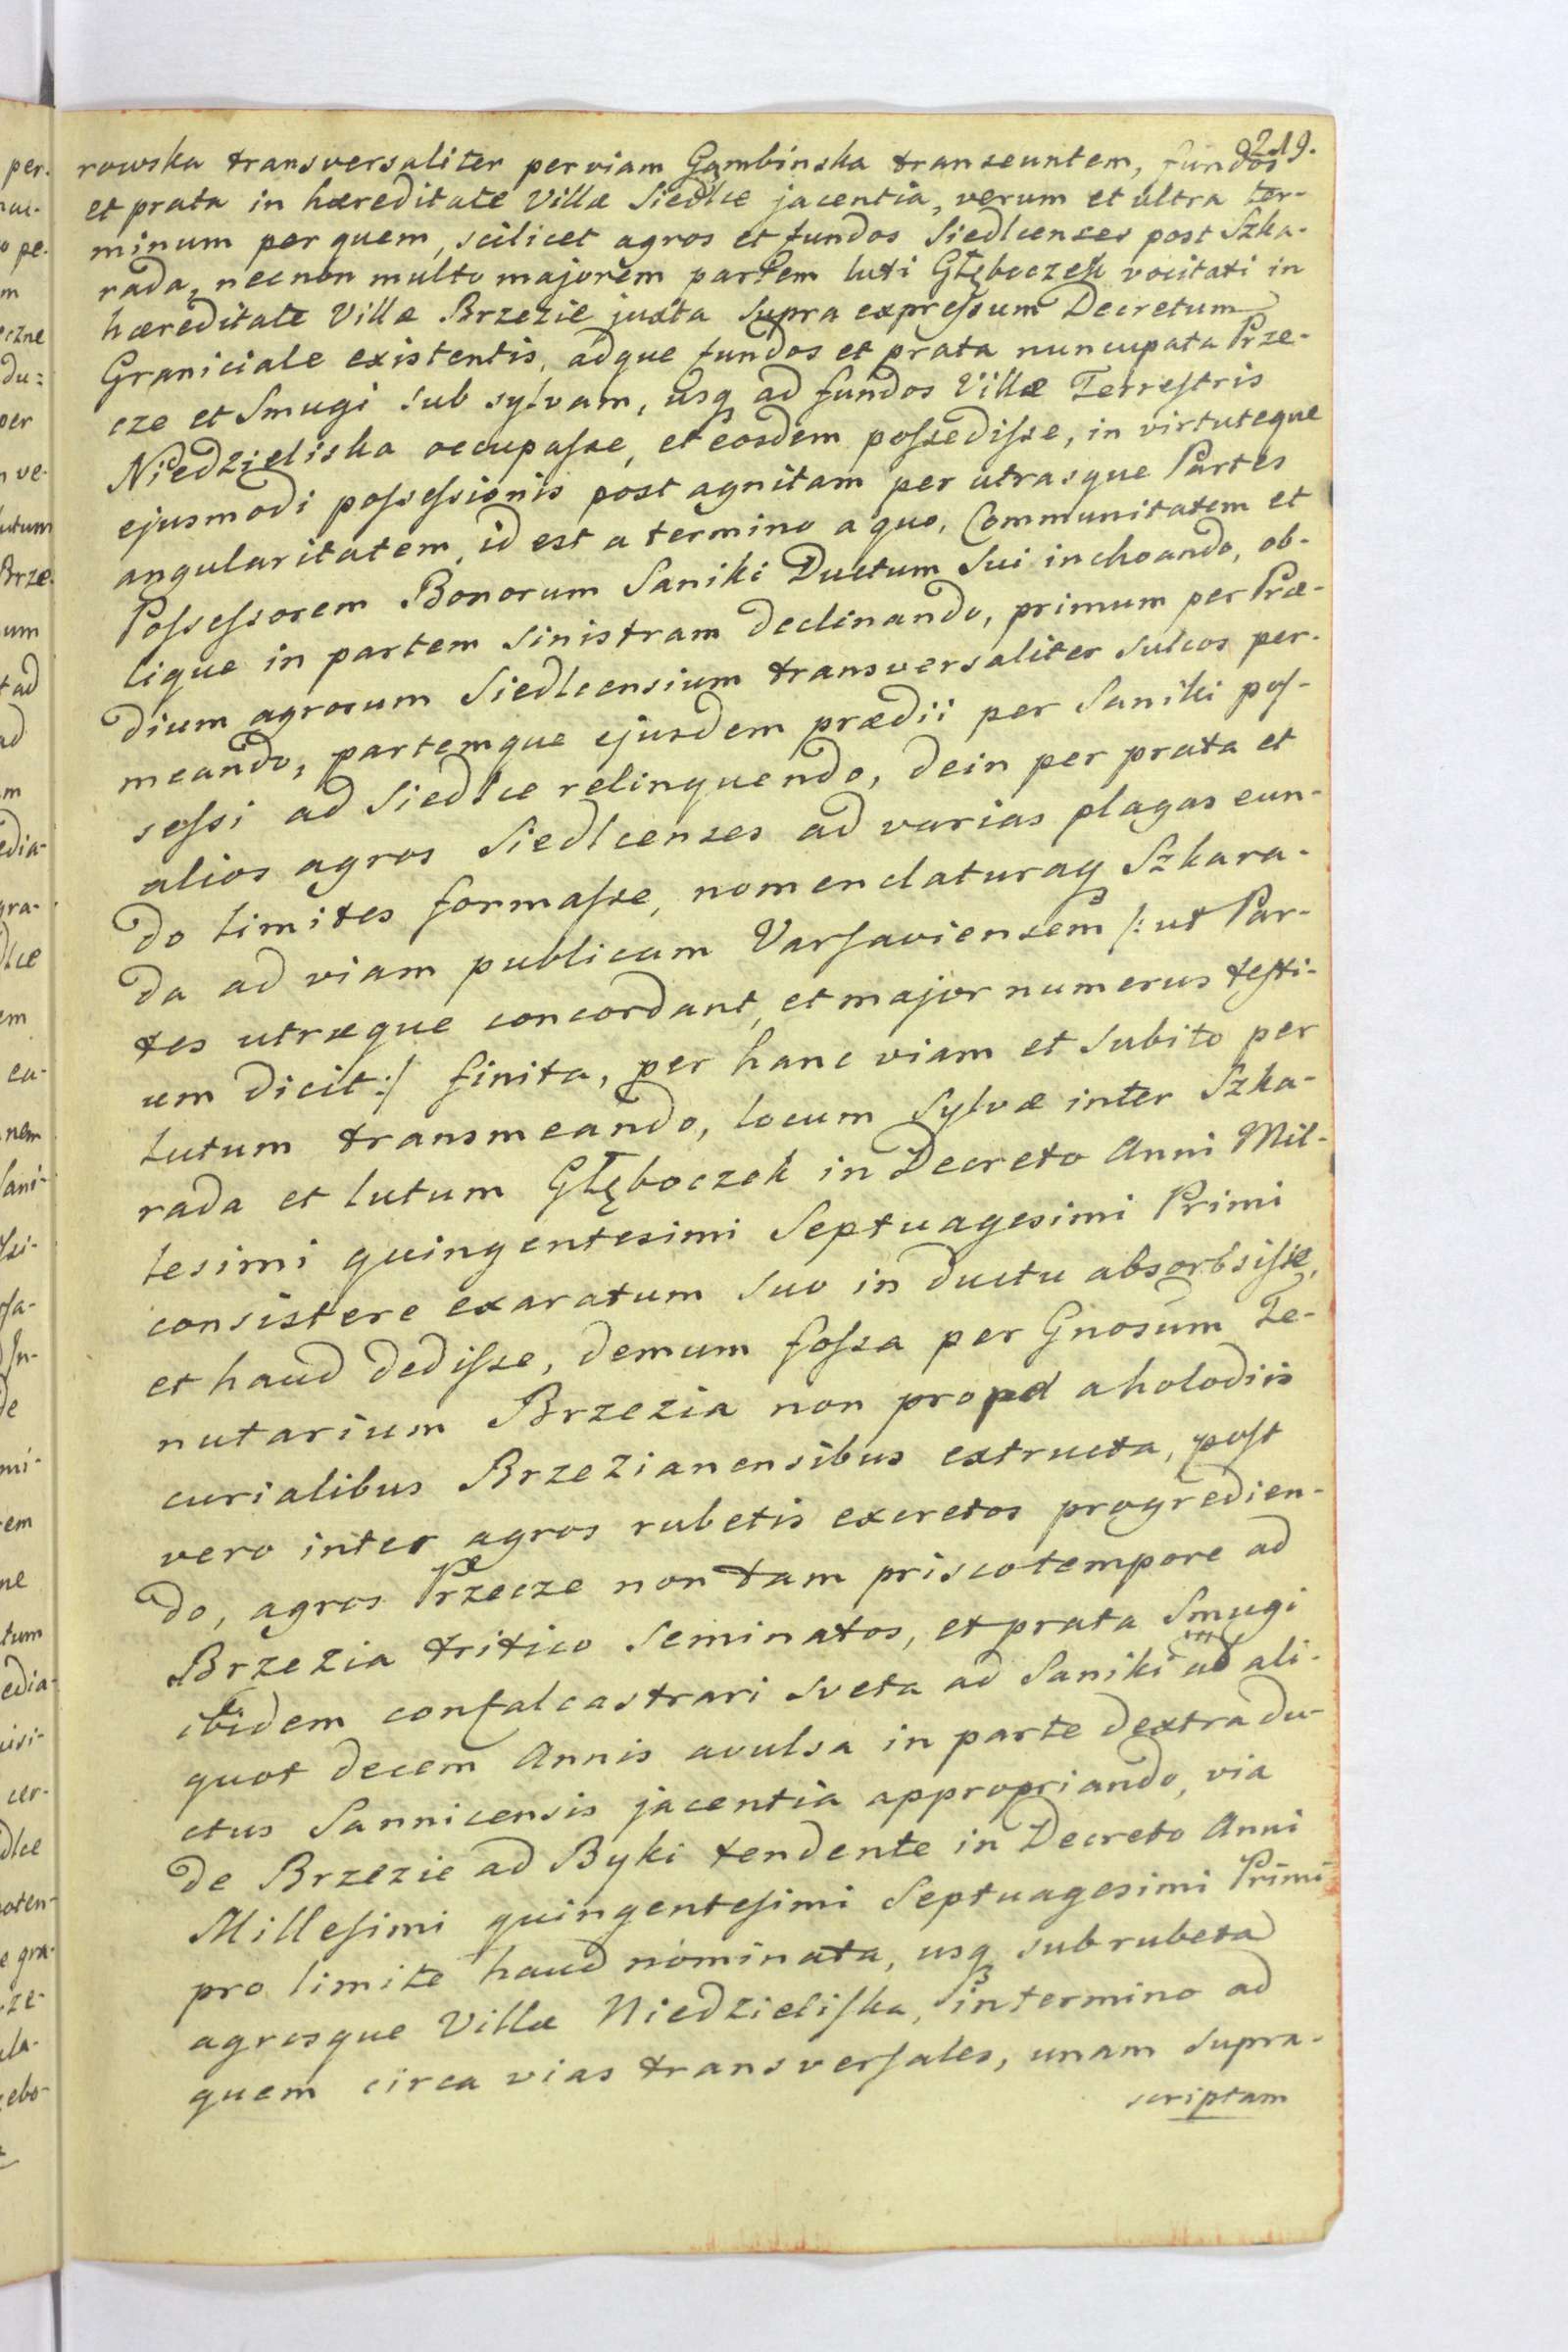 219.
rowska transversaliter per viam Gąmbinska transeuntem, fundos
et prata in hæreditate Villæ Siedlce jacentia, verum et ultra ter-
minum per quem, scilicet agros et fundos Siedlcenses post Szka-
rada, nec non multo majorem partem luti Głęboczek vocitati in
hæreditate Villæ Brzezie juxta supra expreſsum Decretum
Graniciale existentis, adque fundos et prata nuncupata Prze-
cze et Smugi sub sylvam, usq ad fundos Villæ Terreſtris
Niedzieliska occupaſse, et eosdem poſsediſse, in virtuteque
ejusmodi poſseſsionis post agnitam per utrasque Partes
angularitatem, id est a termino a quo, Communitatem et
Poſseſsorem Bonorum Saniki Ductum Sui inchoando, ob-
lique in partem sinistram declinando, primum per Præ-
dium agrorum Siedlcensium transversaliter sulcos per-
meando, partemque ejusdem prædii per Saniki poſ-
seſsi ad Siedlce relinquendo, dein per prata et
alios agros Siedlcenses ad varias plagas eun-
do limites formaſse, nomenclaturaq Szkara-
da ad viam publicam Varſaviensem /: ut Par-
tes utræque concordant, et major numerus teſti-
um dicit :/ finita, per hanc viam et subito per
lutum transmeando, locum Sylvæ inter Szka-
rada et lutum Głęboczek in Decreto Anni Mil-
lesimi quingentesimi Septuagesimi Primi
consistere exaratum suo in ductu absorbsiſse,
et haud dediſse, demum foſsa per Gnosum Te-
nutarium Brzezia non prope a holodiis
curialibus Brzezianensibus extructa, poſt
vero inter agros rubetis excretos progredien-
do, agros Przecze non tam prisco tempore ad
Brzezia tritico seminatos, et prata Smugi
ibidem confalcastrari sveta ad Saniki ab ali-
quot decem Annis avulsa in parte dextra du-
ctus Sannicensis jacentia appropriando, via
de Brzezie ad Byki tendente in Decreto Anni
Milleſimi quingenteſimi Septuagesimi Primi
pro limite haud nominata, usq sub rubeta
agrosque Villæ Niedzieliſka, in termino ad
quem circa vias transverſales, unam supra-
scriptam